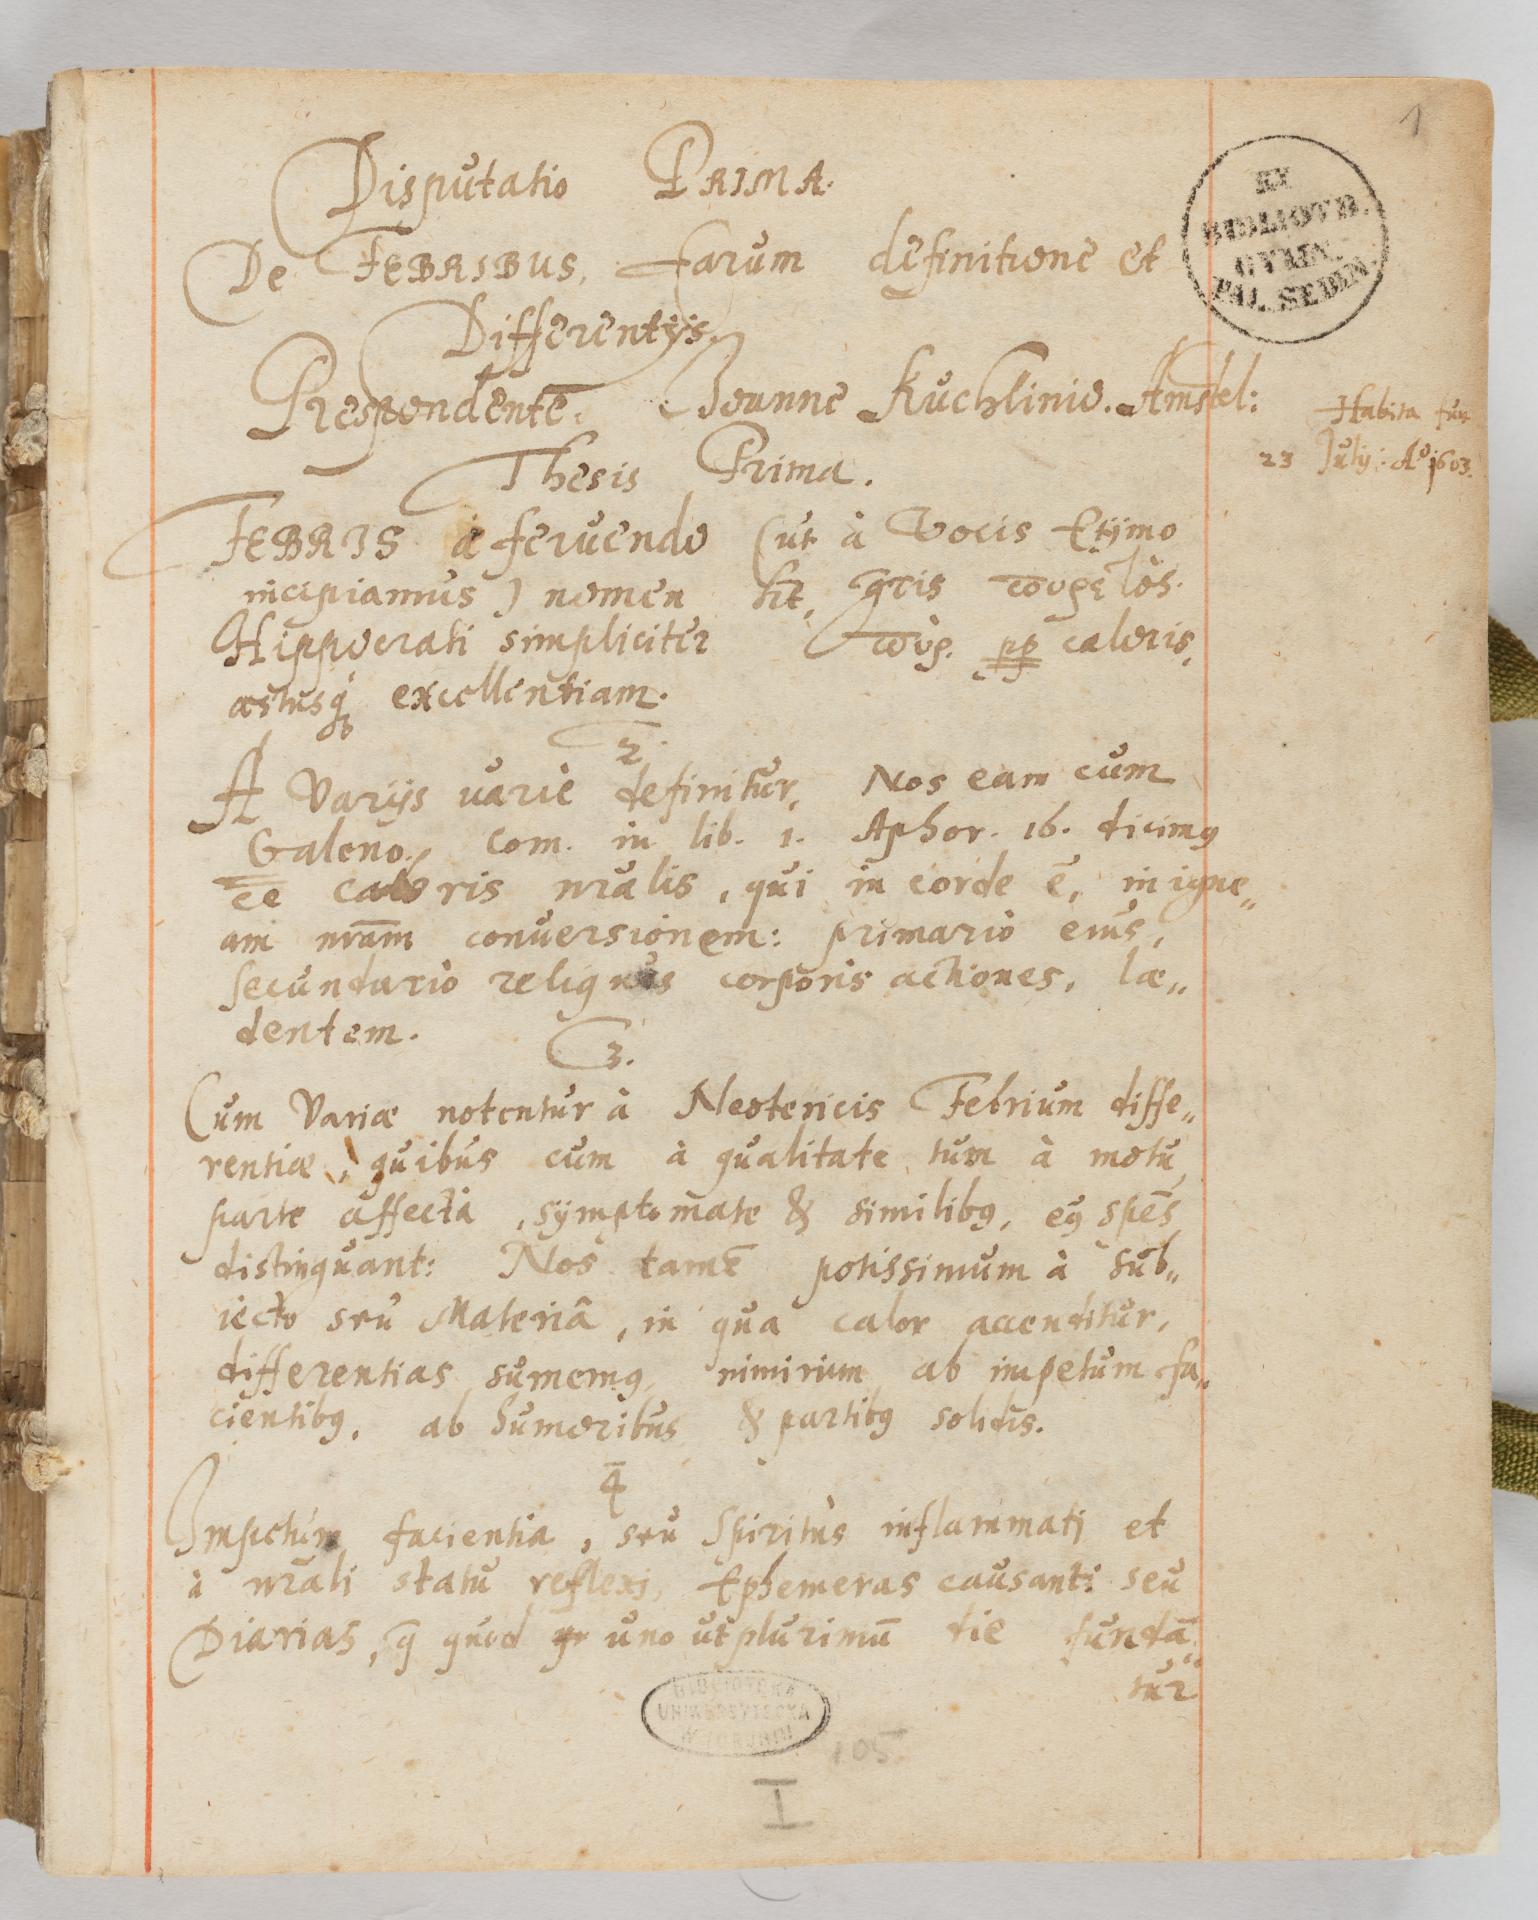 1
Disputatio PRIMA.
EX
BIBLIOTH.
GYMN.
PAL. SEDIN.
De FEBRIBUS, Earum definitione et
Differentijs.
Respondente. Joanne Kuchlinio. Amstel:
Habita fuit
23 Julij: Ao 1603.
Thesis Prima.
FEBRIS à feruendo (ut à Vocis Etijmo
incipiamus) nomen
Hippocrati simpliciter pp caloris,
æstusq excellentiam.
2.
A Varijs uariè definitur, Nos eam cum
Galeno, com. in lib. 1. Aphor. 16. dicimq
ēe caloris nrālis, qui in corde ē, in igne„
am nrām conuersionem: primariò eius,
secundariò reliquas corporis actiones, læ„
dentem.
3.
Cum Variæ notentur à Neotericis Febrium diffe„
rentiæ, quibus cum à qualitate tum à motu
parte affecta, symptomate & similibq, eq spēs
distinquant: Nos tamē potissimum à sub„
iecto seu Materiâ, in qua calor accenditur,
differentias sumemq, nimirum ab impetum fa„
cientibq, ab humoribus & partibq solidis.
4
Impetum facientia, seu Spiritus inflammati et
à nrāli statu reflexi, Ephemeras causant: seu
Diarias, q̄ quod uno ut plurimū die fundā„
tur
BIBLIOTEKA
UNIWERSYTECKA
W TORUNIU
105
I